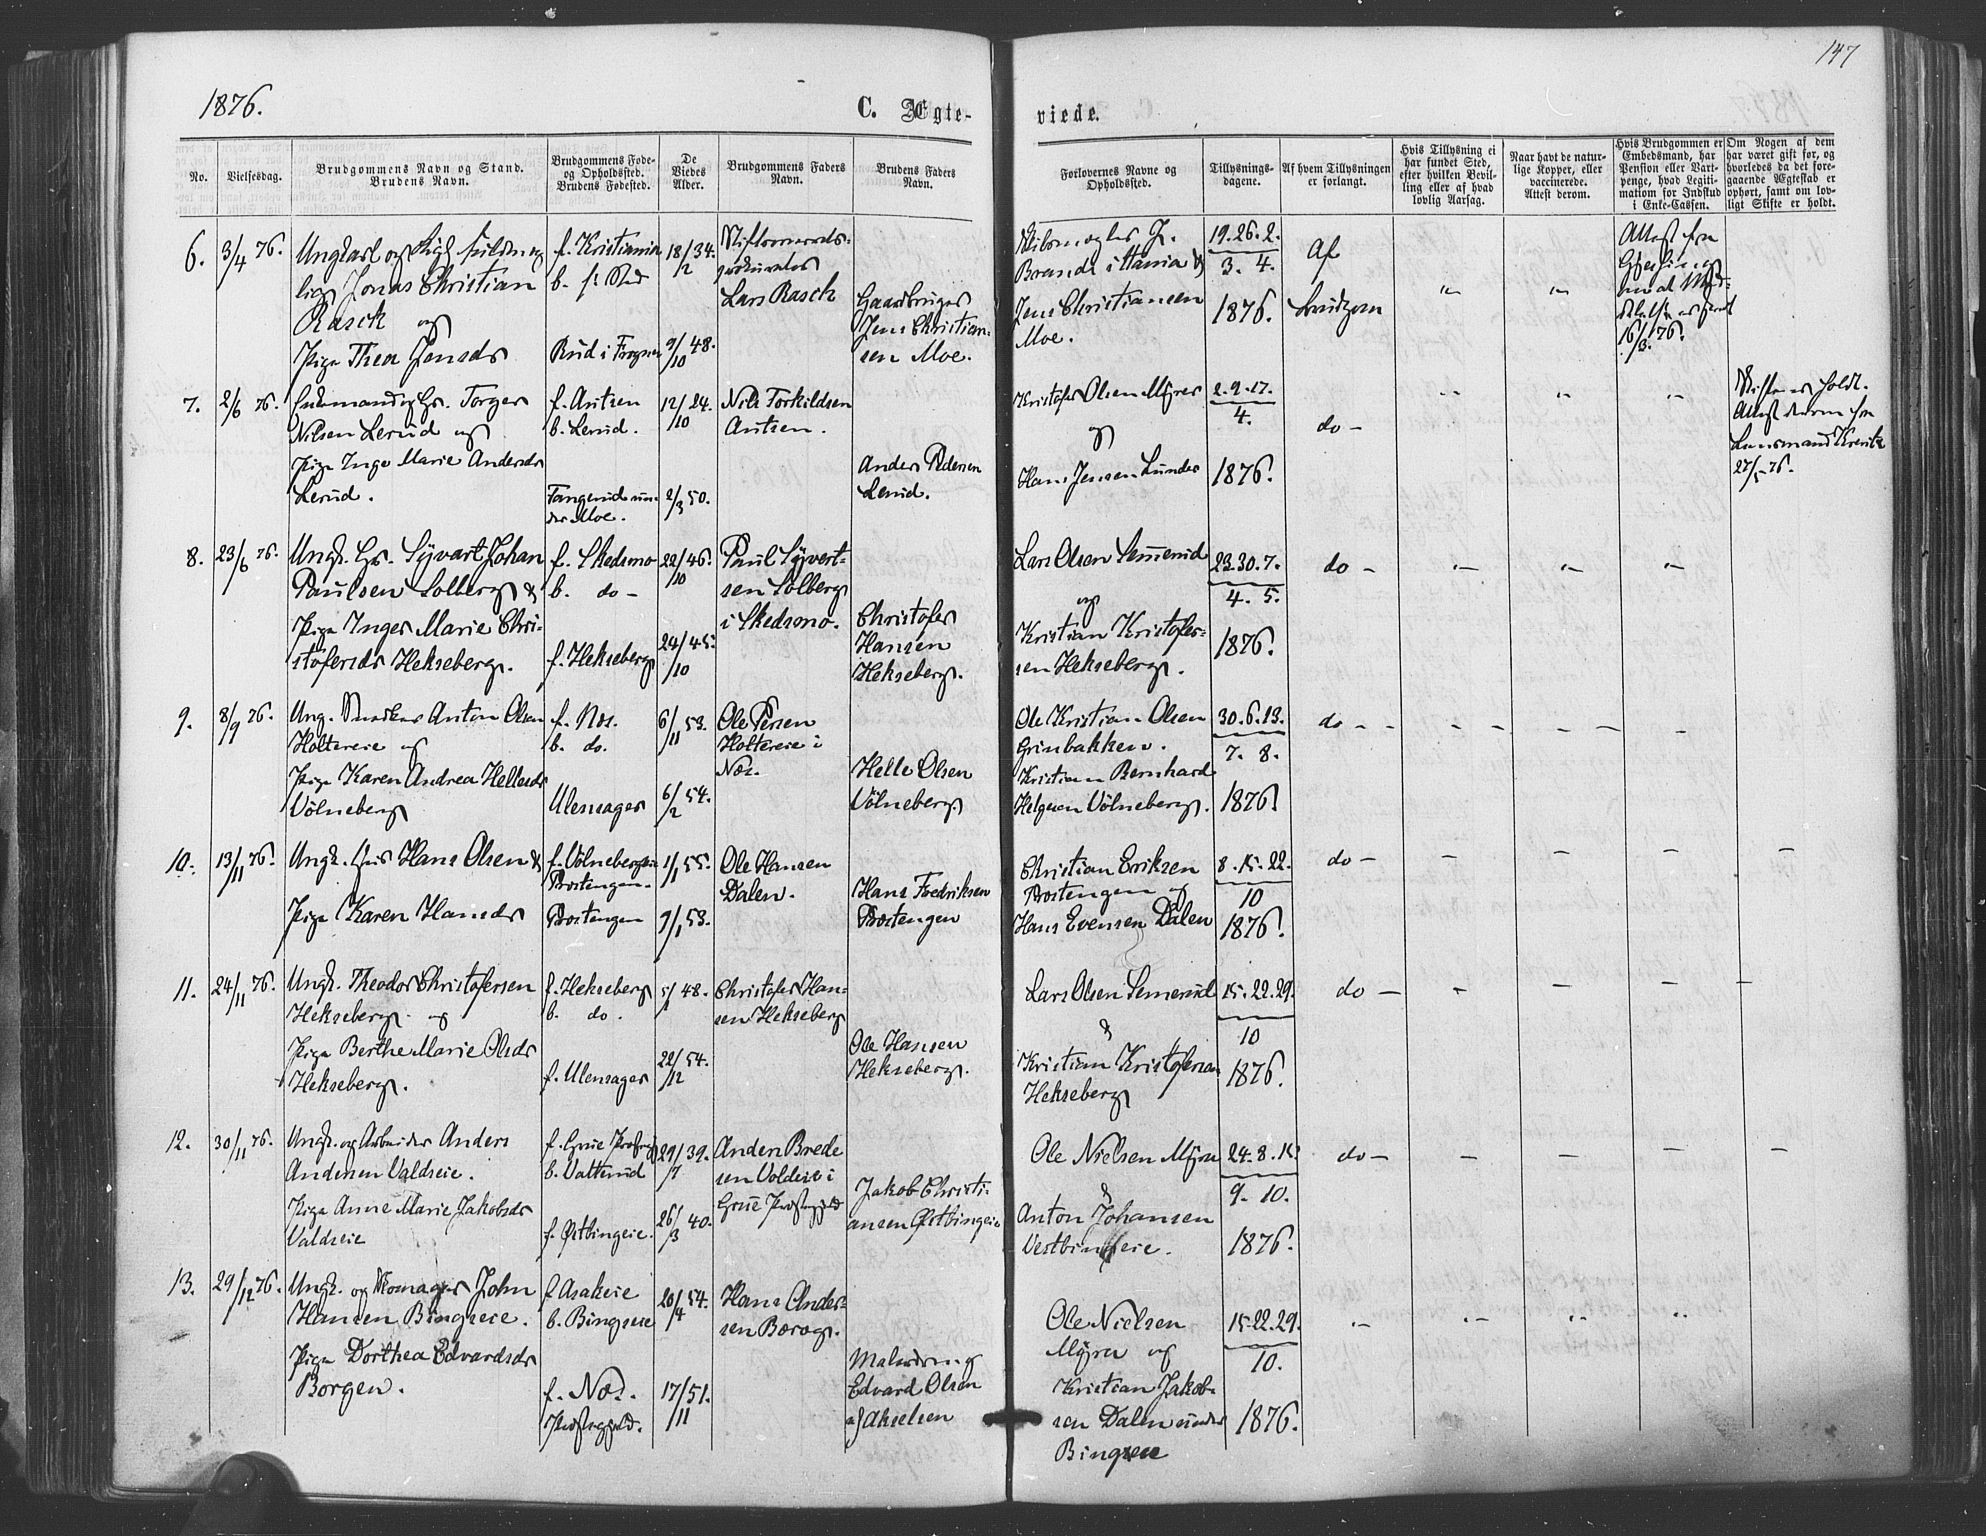 147
1876.
C. Ægte-
viede.
No.
Vielsesdag.
Brudgommens Navn og Stand.
Brudens Navn.
Brudgommens Føde-
og Opholdssted.
Brudens Fødested.
De
Viedes
Alder.
Brudgommens Faders
Navn.
Brudens Faders
Navn.
Forlovernes Navne og
Opholdssted.
Tillysnings-
dagene.
Af hvem Tillysningen
er forlangt.
Hvis Tillysning ei
har fundet Sted,
efter hvilken Bevil-
ling eller af hvad
lovlig Aarsag.
Naar havt de natur-
lige Kopper, eller
vaccinerede.
Attest derom.
Hvis Brudgommen er
Embedsmand, har
Pension eller Vart-
penge, hvad Legiti-
mation for Indskud
i Enke-Cassen.
Om Nogen af dem
har været gift før, og
hvorledes da det fore-
gaaende Ægteskab er
ophørt, samt om lov-
ligt Skifte er holdt.
6. 3/4 76.
Ungkarl og
Jonas Christian
Rasck og
Pige Thea Jensdr
f. Kristiania
b.
Rud i Frogner
18/2 34.
9/10 48.
Lars Rasck
Gaardbruger
Jens Christian-
sen Moe.
Brandt i
Jens Christiansen
Moe.
19. 26. 2.
3. 4.
1876.
Af
Brudgom
"
"
Attest fra
16/3 76.
7. 2/6 76.
Enkemand og Gr. Torger
Nilsen Lerud og
Pige Inge Marie Andersdr
Lerud.
f. Autsen
b. Lerud.
Tangerud un-
der Moe.
12/10 24.
2/3 50.
Nils Torkildsen
Autsen.
Anders Pedersen
Lerud.
Kristofer Olsen Myrer
og
Hans Jensen Lunder
2. 9. 17.
4.
1876.
do -
"
"
"
Skifte er holdt.
Attest derom fra
Lensmand
27/5 76.
8. 23/6 76.
Ungk. Gr. Syvart Johan
Paulsen Solberg &
Pige Inger Marie Chri-
stofersdr Hekseberg.
f. Skedsmo
b. do -
f. Hekseberg
22/10 46.
24/10 45.
Paul Syvert-
sen Solberg
i Skedsmo.
Christofer
Hansen
Hekseberg.
Lars Olsen Semerud
og
Kristian Kristofer-
sen Hekseberg.
23. 30. 7.
4. 5.
1876.
do -
9. 8/9 76.
Ung. Snedker Anton Olsen
Holtereie og
Pige Karen Andrea Hellesdr
Völneberg
f. Næs.
b. do.
Ulensager
6/11 53.
6/2 54.
Ole Persen
Holtereie i
Næs.
Helle Olsen
Völneberg.
Ole Kristian Olsen
Grinbakken.
Kristian Bernhard
Helgesen Völneberg.
30. 6. 13.
7. 8.
1876.
do -
10. 13/11 76.
Ungk. Hans Olsen &
Pige Karen Hansdr
f. Völnebergeie
Prostengen-
Prostengen
1/1 55.
9/1 53.
Ole Hansen
Dalen.
Hans Fredriksen
Prostengen
Christian Eriksen
Prostengen og
Hans Evensen Dalen
8. 15. 22.
10
1876.
do -
11. 24/11 76.
Ungk. Theodor Christofersen
Hekseberg og
Pige Berthe Marie Olsdr
Hekseberg.
f. Hekseberg
b. do.
f. Ulensager
5/1 48.
22/12 54.
Christofer Han-
sen Hekseberg
Ole Hansen
Hekseberg.
Lars Olsen Semerud
&
Kristian Kristofersen
Hekseberg
15. 22. 29.
10
1876.
do -
12. 30/11 76.
Ungk. og Arbeider Anders
Andersen Valdseie.
Pige Anne Marie Jakobsdr
Valdseie
f. Grue Præstegj.
b. Valterud
f. Østbingeie.
29/7 39.
26/3 40.
Anders Brede
sen Voldeie i
Grue Præstegjeld
Jakob Christi-
ansen Østbingeie
Ole Nielsen Myra
&
Anton Johansen
Vestbingeie.
24. 8. 15.
9. 10.
1876.
do -
13. 29/12 76.
Ungk. og Skomager John
Hansen Bingseie.
Pige Dorthea Edvardsdr
Borgen.
f. Asakeie
b. Bingseie
f. Næs.
Præstegjeld.
20/4 54.
17/11 51.
Hans Ander-
sen Bærog.
Edvard Olsen
af Akselsen
Ole Nielsen
Myra og
Kristian Jakob-
sen Dalen under
Bingsen
15. 22. 29.
10.
1876.